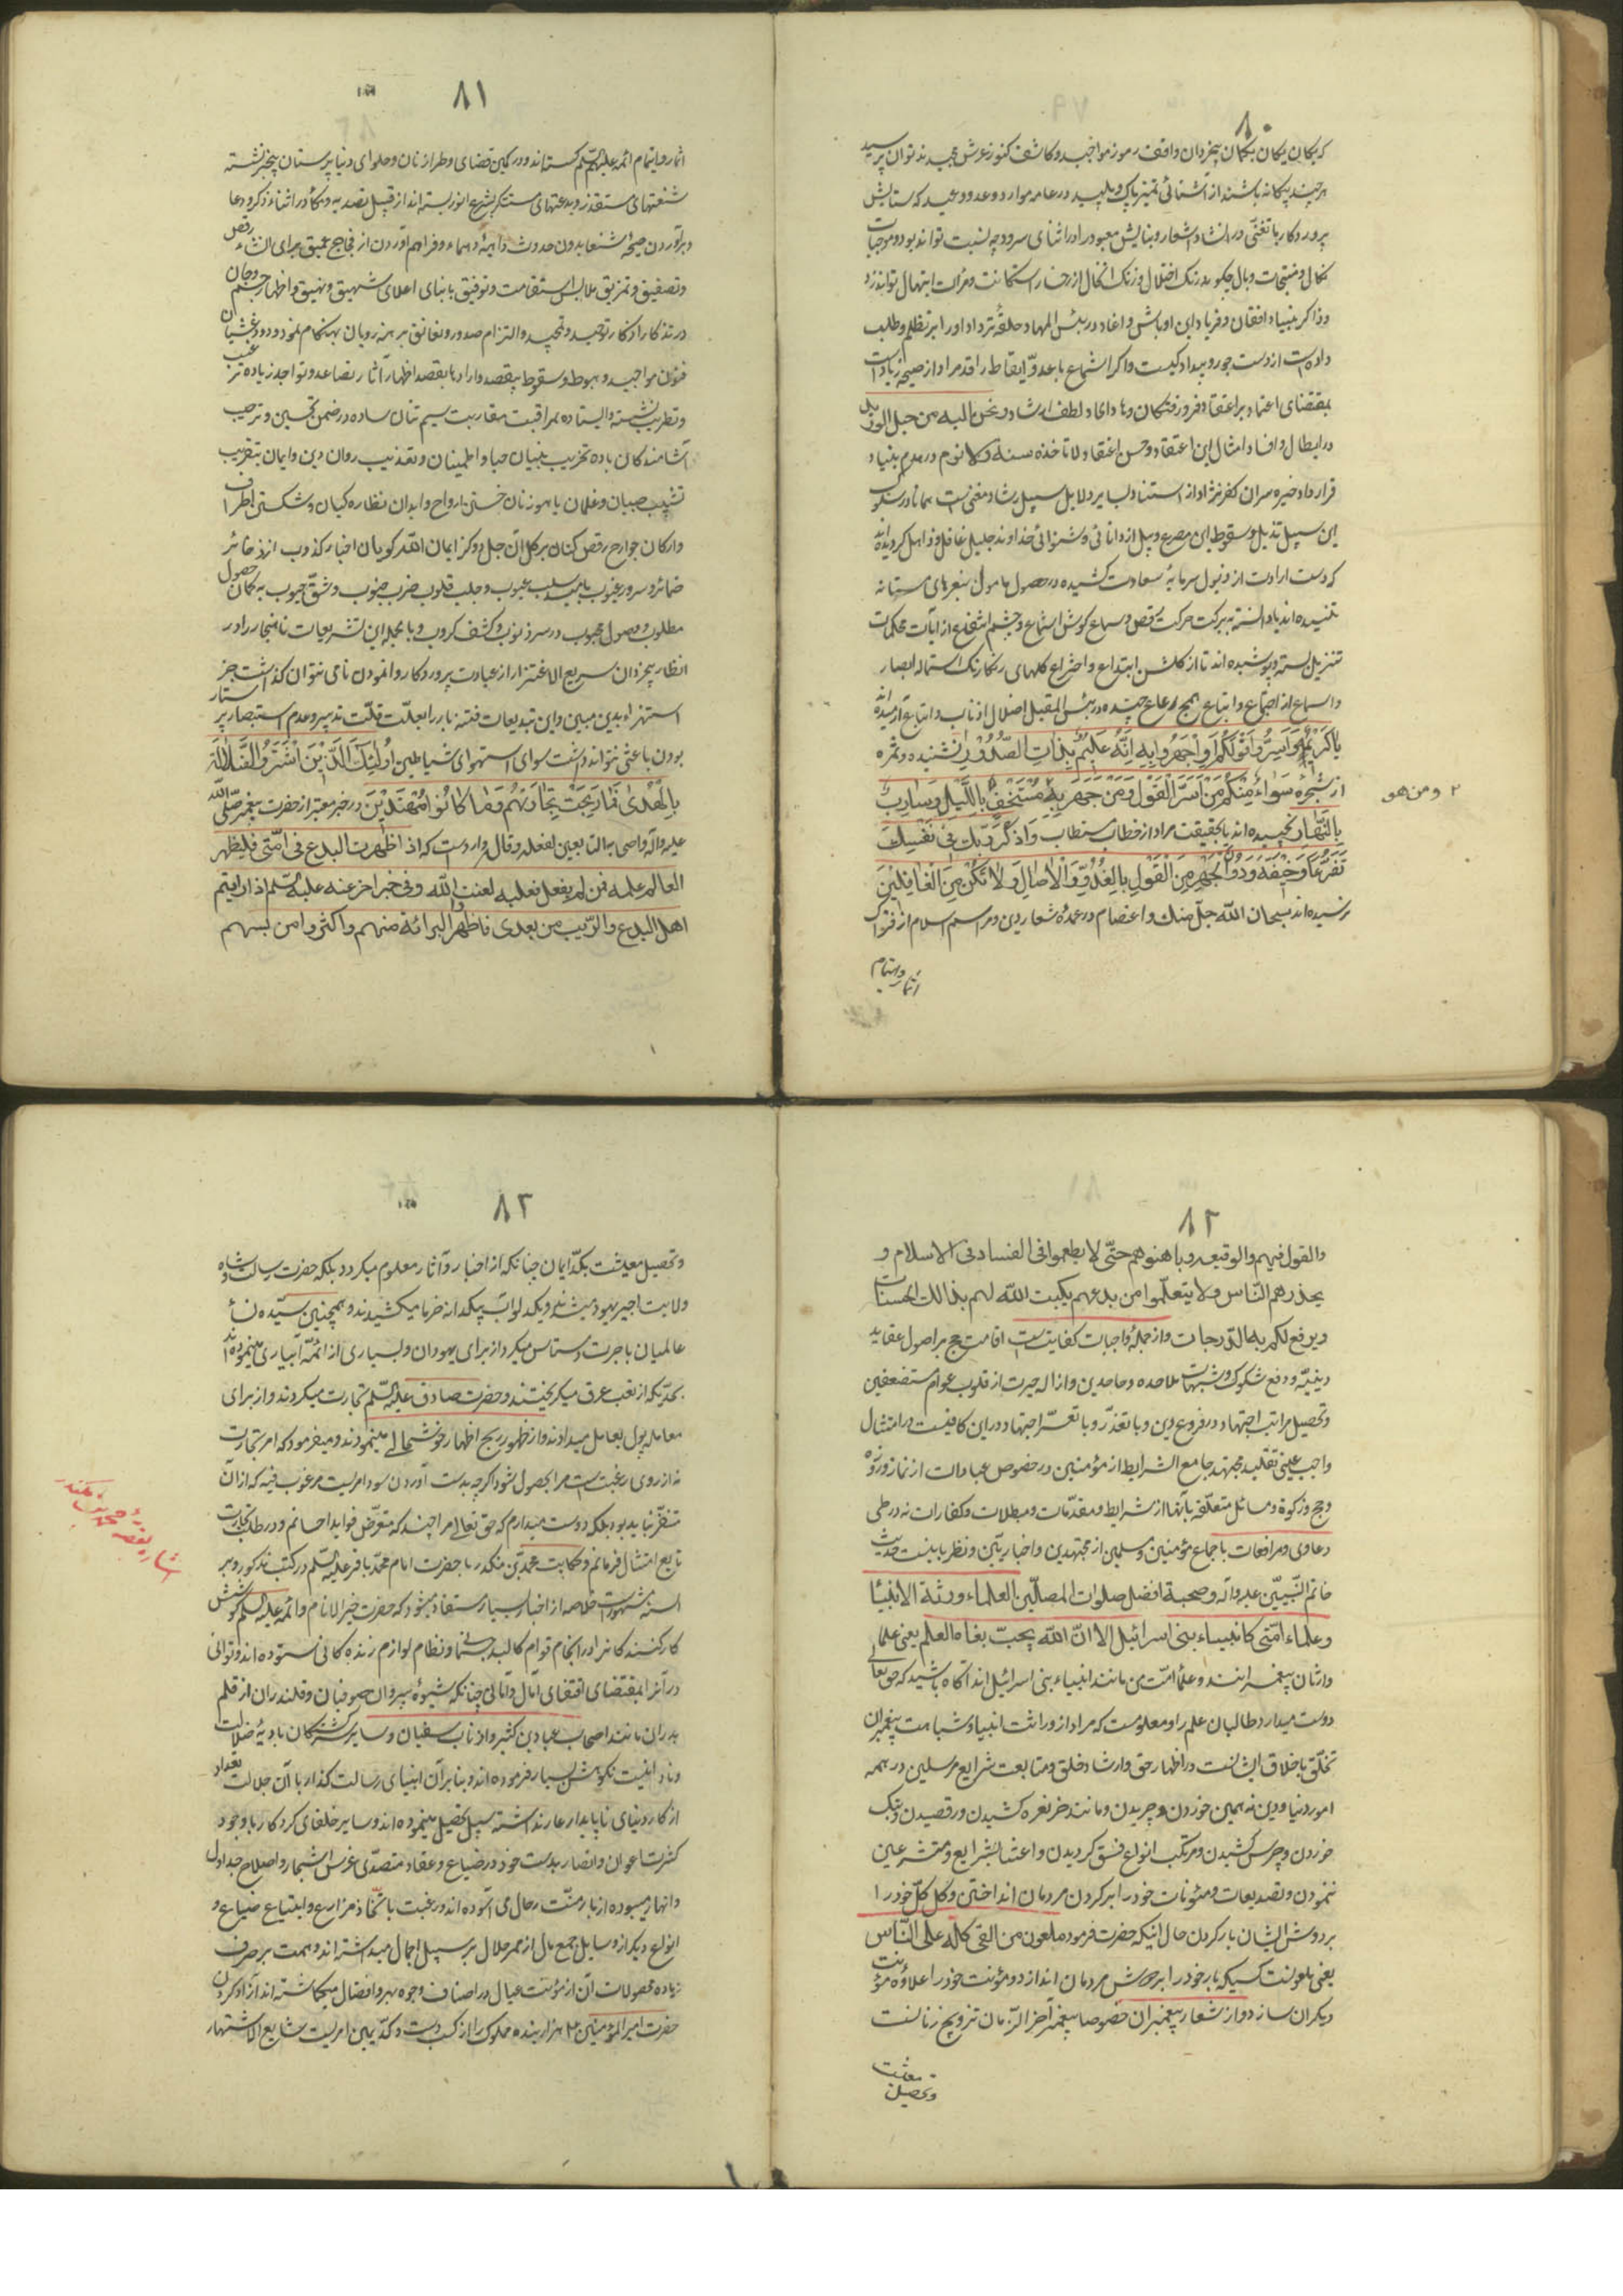 ۸۰
که بکمان یکان بکمان بیخردان واقف رموز مواجید و کاشف کنوز عرش مجیدند توان پرسید
هر چند بیکانه باشند از آشنائی تمیز پاک و پلید در عامه موارد وعد و وعید که ستایش
پروردکار با تغنّی در انشاد اشعار و نیایش معبود در اثنای سرود چه نسبت تواند بود و موجبات
نکال و منتجات وبال چکونه زنک اختلال و زنک انحلال از رخسار استکانت و مرات ابتهال تواند زد
و ذاکر بنیاد افغان و فریاد این اوباش و اغاد در بئس المهاد حلقه تردد او را بر تظلم و طلب
داد است از دست جور و بیداد کیست و اکر استماع با عدو ایقاظ راقد مراد از صیحه زیاد است
بمقتضای اعتماد بر اعتقاد فرورفتکان و هاد الحاد لطف ارشاد و نحن الیه من حبل الورید
در ابطال و افساد امثال این اعتقاد و حسن اعتقاد لا تاخذه سنة ولا نوم در هدم بنیاد
قرارداد خیره سران کفر نژاد از استناد بسایر دلایل سبیل رشاد مغنی است همانا در سلوک
این سبیل تذلیل و سقوط این مصرع وبیل از دانائی و شنوائی خداوند جلیل غافل و ذاهل کردیده‌اند
که دست ارادت از ذیول سرمایهٔ سعادت کشیده در حصول مامول بنعرهای مستانه
تنیده‌اند یا دانسته به برکت حرکت رقص و سماع کوش استماع و چشم انتفاع از آیات محکمات
تنزیل بسته و پوشیده‌اند تا از کلشن ابتداع و اختراع کلهای رنکارنک استماله ابصار
و اسماع از اجتماع و اتباع همج رعاع چیده در بئس المقیل اضلال اذناب و اتباع آرمیده‌اند
یا کریمهٔ وَاَسِرُّوا قَوْلَكُمْ اَوِ اجْهَرُوا بِهِ اِنَّهُ عَلِيمٌ بِذَاتِ الصُّدُورِ نشنیده و ثمره
از شجرهٔ سَوَاءٌ مِنْكُمْ مَنْ اَسَرَّ الْقَوْلَ وَمَنْ جَهَرَ بِهِ مُسْتَخْفٍ بِاللَّيْلِ وَسَارِبٌ
۲ ومن هو
بِالنَّهَارِ نچیده‌اند یا بحقیقت مراد از خطاب مستطاب وَاذْكُرْ رَبَّكَ فِي نَفْسِكَ
تَضَرُّعًا وَخِيفَةً وَدُونَ الْجَهْرِ مِنَ الْقَوْلِ بِالْغُدُوِّ وَالْاٰصَالِ وَلَا تَكُنْ مِنَ الْغَافِلِينَ
نرسیده‌اند سبحان الله جلّ منک و اعتصام در عمدهٔ شعار دین و مراسم اسلام از فتراک
آثار و اتمام
۸۱
آثار و اتمام ائمه علیهم السّلم کسسته‌اند و در کمین قضای وطر از نان و حلوای دنیاپرستان بیخبر نشسته
شنعتهای مستقذر و بدعتهای مستنکر بشرع انور بسته‌اند از قبیل تصدیه و مکاء در اثناء ذکر و دعا
و برآوردن صیحهٔ شنعا بدون حدوث داهیهٔ دهماء و فراهم آوردن از فجاجّ عمیق برای انشاء رقص
و تصفیق و تمزیق ملابس استقامت و توفیق با نبای اعلای شهیق و نهیق و اظهار جسم و جان
در تذکار اذکار توحید و تمجید و التزام صدور و نغانق بر بمزه رویان بهنکام نمود و درود غشیان
فنون مواجید و هبوط و سقوط بیقصد و اراده یا بقصد اظهار آثار تصاعد و تواجد زیاده تر عیب
و تطریب نشسته و ایستاده بمراقبت مقاربت سیم تنان ساده در ضمن تحسین و ترحیب
آشامندکان باده تخریب بنیان حیا و اطمینان و تعذیب روان دین و ایمان بتقریب
تشبیب صبیان و غلمان یا سوزنان خستن ارواح و ابدان نظاره کیان و شکستن اطراف
و ارکان جوارح رقص کنان بر کل ان جل و وکز ایمان الله کویان اخبار کذوب از ذخائر
ضمائر و سرور غیوب بامید سلب عیوب و جلب قلوب ضرب جنوب و شقّ جیوب به کمان حصول
مطلوب و وصول محبوب در سر ذنوب و کشف کروب و بالجمله این تشریعات ناهنجار را در
انظار بیخردان سریع الاغترار از عبادت پروردکار وانمودن نامی نتوان کذاشت جز
استهزاء بدین مبین و این تبدیعات فتنه بار را بعلّت قلّت تدبیر و عدم استبصار پر ستار
بودن باعثی نتواند داشت سوای استهوای شیاطین اُولٰئِكَ الَّذِينَ اشْتَرَوُا الضَّلَالَةَ
بِالْهُدٰى فَمَا رَبِحَتْ تِجَارَتُهُمْ وَمَا كَانُوا مُهْتَدِينَ در خبر معتبر از حضرت پیغمبر صلّی الله
علیه وآله واصحابه التابعین لفعله وقال وارد است که اذا ظهرت البدع فی امّتی فلیظهر
العالم علمه فمن لم یفعل فعلیه لعنت الله وفی خبر اخر عنه علیه السّلم اذا رایتم
اهل البدع والرّیب من بعدی فاظهروا البرائة منهم واکثروا من سبّهم
۸۲
والقول فیهم والوقیعه وباهتوهم حتّی لا یطمعوا فی الفساد فی الاسلام و
یحذرهم النّاس ولا یتعلّموا من بدعهم یکتب الله لهم بذالک الحسنات
ویرفع لکم به الدّرجات و از جملهٔ واجبات کفایتست اقامت حجج بر اصول عقاید
دینیّه و دفع شکوک و شبهات ملاحده و جاحدین و ازاله حیرت از قلوب عوام مستضعفین
و تحصیل مراتب اجتهاد در فروع دین و با تعذّر و یا تعسّر اجتهاد در این کافیست در امتثال
واجب عینی تقلید مجتهد جامع الشرایط از مؤمنین در خصوص عبادات از نماز و روزه
و حج و زکوة و مسائل متعلّقه بآنها از شرایط و مقدّمات و مبطلات و کفارات نه در طی
دعاوی و مرافعات باجماع مؤمنین و مسلمین از مجتهدین و اخباریّین و نظر باینست حدیث
خاتم النّبیّین علیه وآله وصحبه افضل صلوات المصلّین العلماء ورثة الانبیا
وعلماء امّتی کانبیاء بنی اسرائیل الا انّ الله یحبّ بغاة العلم یعنی علما
وارثان پیغمبرانند و علماء امّت من مانند انبیاء بنی اسرائیل‌اند آکاه باشید که حق تعالی
دوست میدارد طالبان علم را و معلومست که مراد از وراثت انبیا و شباهت پیغمبران
تخلّق باخلاق ایشانست در اظهار حق و ارشاد خلق و متابعت شرایع مرسلین در همه
امور دنیا و دین نه همین خوردن و چریدن و مانند خر نعره کشیدن و رقصیدن و بنک
خوردن و چرس کشیدن و مرتکب انواع فسق کردیدن و اعتنا بشرایع و متشرعین
ننمودن و تصدیعات و مئونات خود را بر کردن مردمان انداختن و کل کلّ خود را
بر دوش ایشان بار کردن حال آنکه حضرت فرمود ملعون من القی کلّه علی النّاس
یعنی ملعونست کسیکه بار خود را بر دوش مردمان اندازد و مؤنت خود را علاوه مؤنت
دیکران سازد و از شعار پیغمبران خصوصا پیغمبر آخر الزّمان تزویج زنانست
و تحصیل معیشت
۸۳
و تحصیل معیشت بکدّ ایمان چنانکه از اخبار و آثار معلوم میکردد بلکه حضرت رسالت و شاه
ولایت اجیر یهود میشدند و یکدلو آب بیکدانه خرما میکشیدند و همچنین سیّده نساء
عالمیان باجرت دستاس میکرد از برای یهودان و بسیاری از ائمّه آبیاری مینموده‌اند
بحدّیکه از تعب عرق میکریختند و حضرت صادق علیه السّلم تجارت میکردند و از برای
معامله پول بعامل میدادند و از ظهور ربح اظهار خوشحالی مینمودند و میفرمود که امر تجارت
نه از روی رغبت است مرا بحصول سود اکر چه بدست آوردن سود امریست مرغوب فیه که از آن
متنفّر نباید بود بلکه دوست میدارم که حق تعالی مرا بیند که متعرّض فواید احسانم و در طلب تجارت
تابع امتثال فرمانم و حکایت محمدبّن منکدر با حضرت امام محمّد باقر علیه السّلم در کتب مذکور و بر
السنه مشهور است خلاصه از اخبار بسیار مستفاد میشود که حضرت خیر الانام و ائمه علیه السلم کوشش
کارکنند کانرا در انجام قوام کالبد جسمانی و نظام لوازم زندکانی ستوده‌اند و توانی
در آنرا بمقتضای اقتفای آمال و آمانی چنانکه شیوهٔ پیروان صوفیان و قلندران از قلم
بدران مانند اصحاب عباد بن کثیر و اذناب سفیان و سایر سرکشتکان بادیهٔ ضلالت
و ناد اذیت نکوهش بسیار فرموده‌اند و بنا بر آن انبیای رسالت کذار با آن جلالت تعداد
از کار دنیای ناپایدار عار نداشته سبیل تحصیل میپیموده‌اند و سایر خلفای کردکار با وجود
کثرت اعوان و انصار بدست خود در ضیاع و عقار متصدّی غرس اشجار و اصلاح جداول
و انهار میبوده از بار منّت رجال می آسوده‌اند و رغبت باتّخاذ مزارع و ابتیاع ضیاع و
انواع دیکر از وسایل جمع مال از ممر حلال بر سبیل اجمال میداشته‌اند و همت بر صرف
زیاده محصولات آن از مؤنت عیال در اصناف وجوه بر و افضال میکماشته‌اند آزاد کردن
حضرت امیر المؤمنین ۲ هزار بنده مملوک را از کسب دست و کدّ یمین امریست شایع الاشتهار